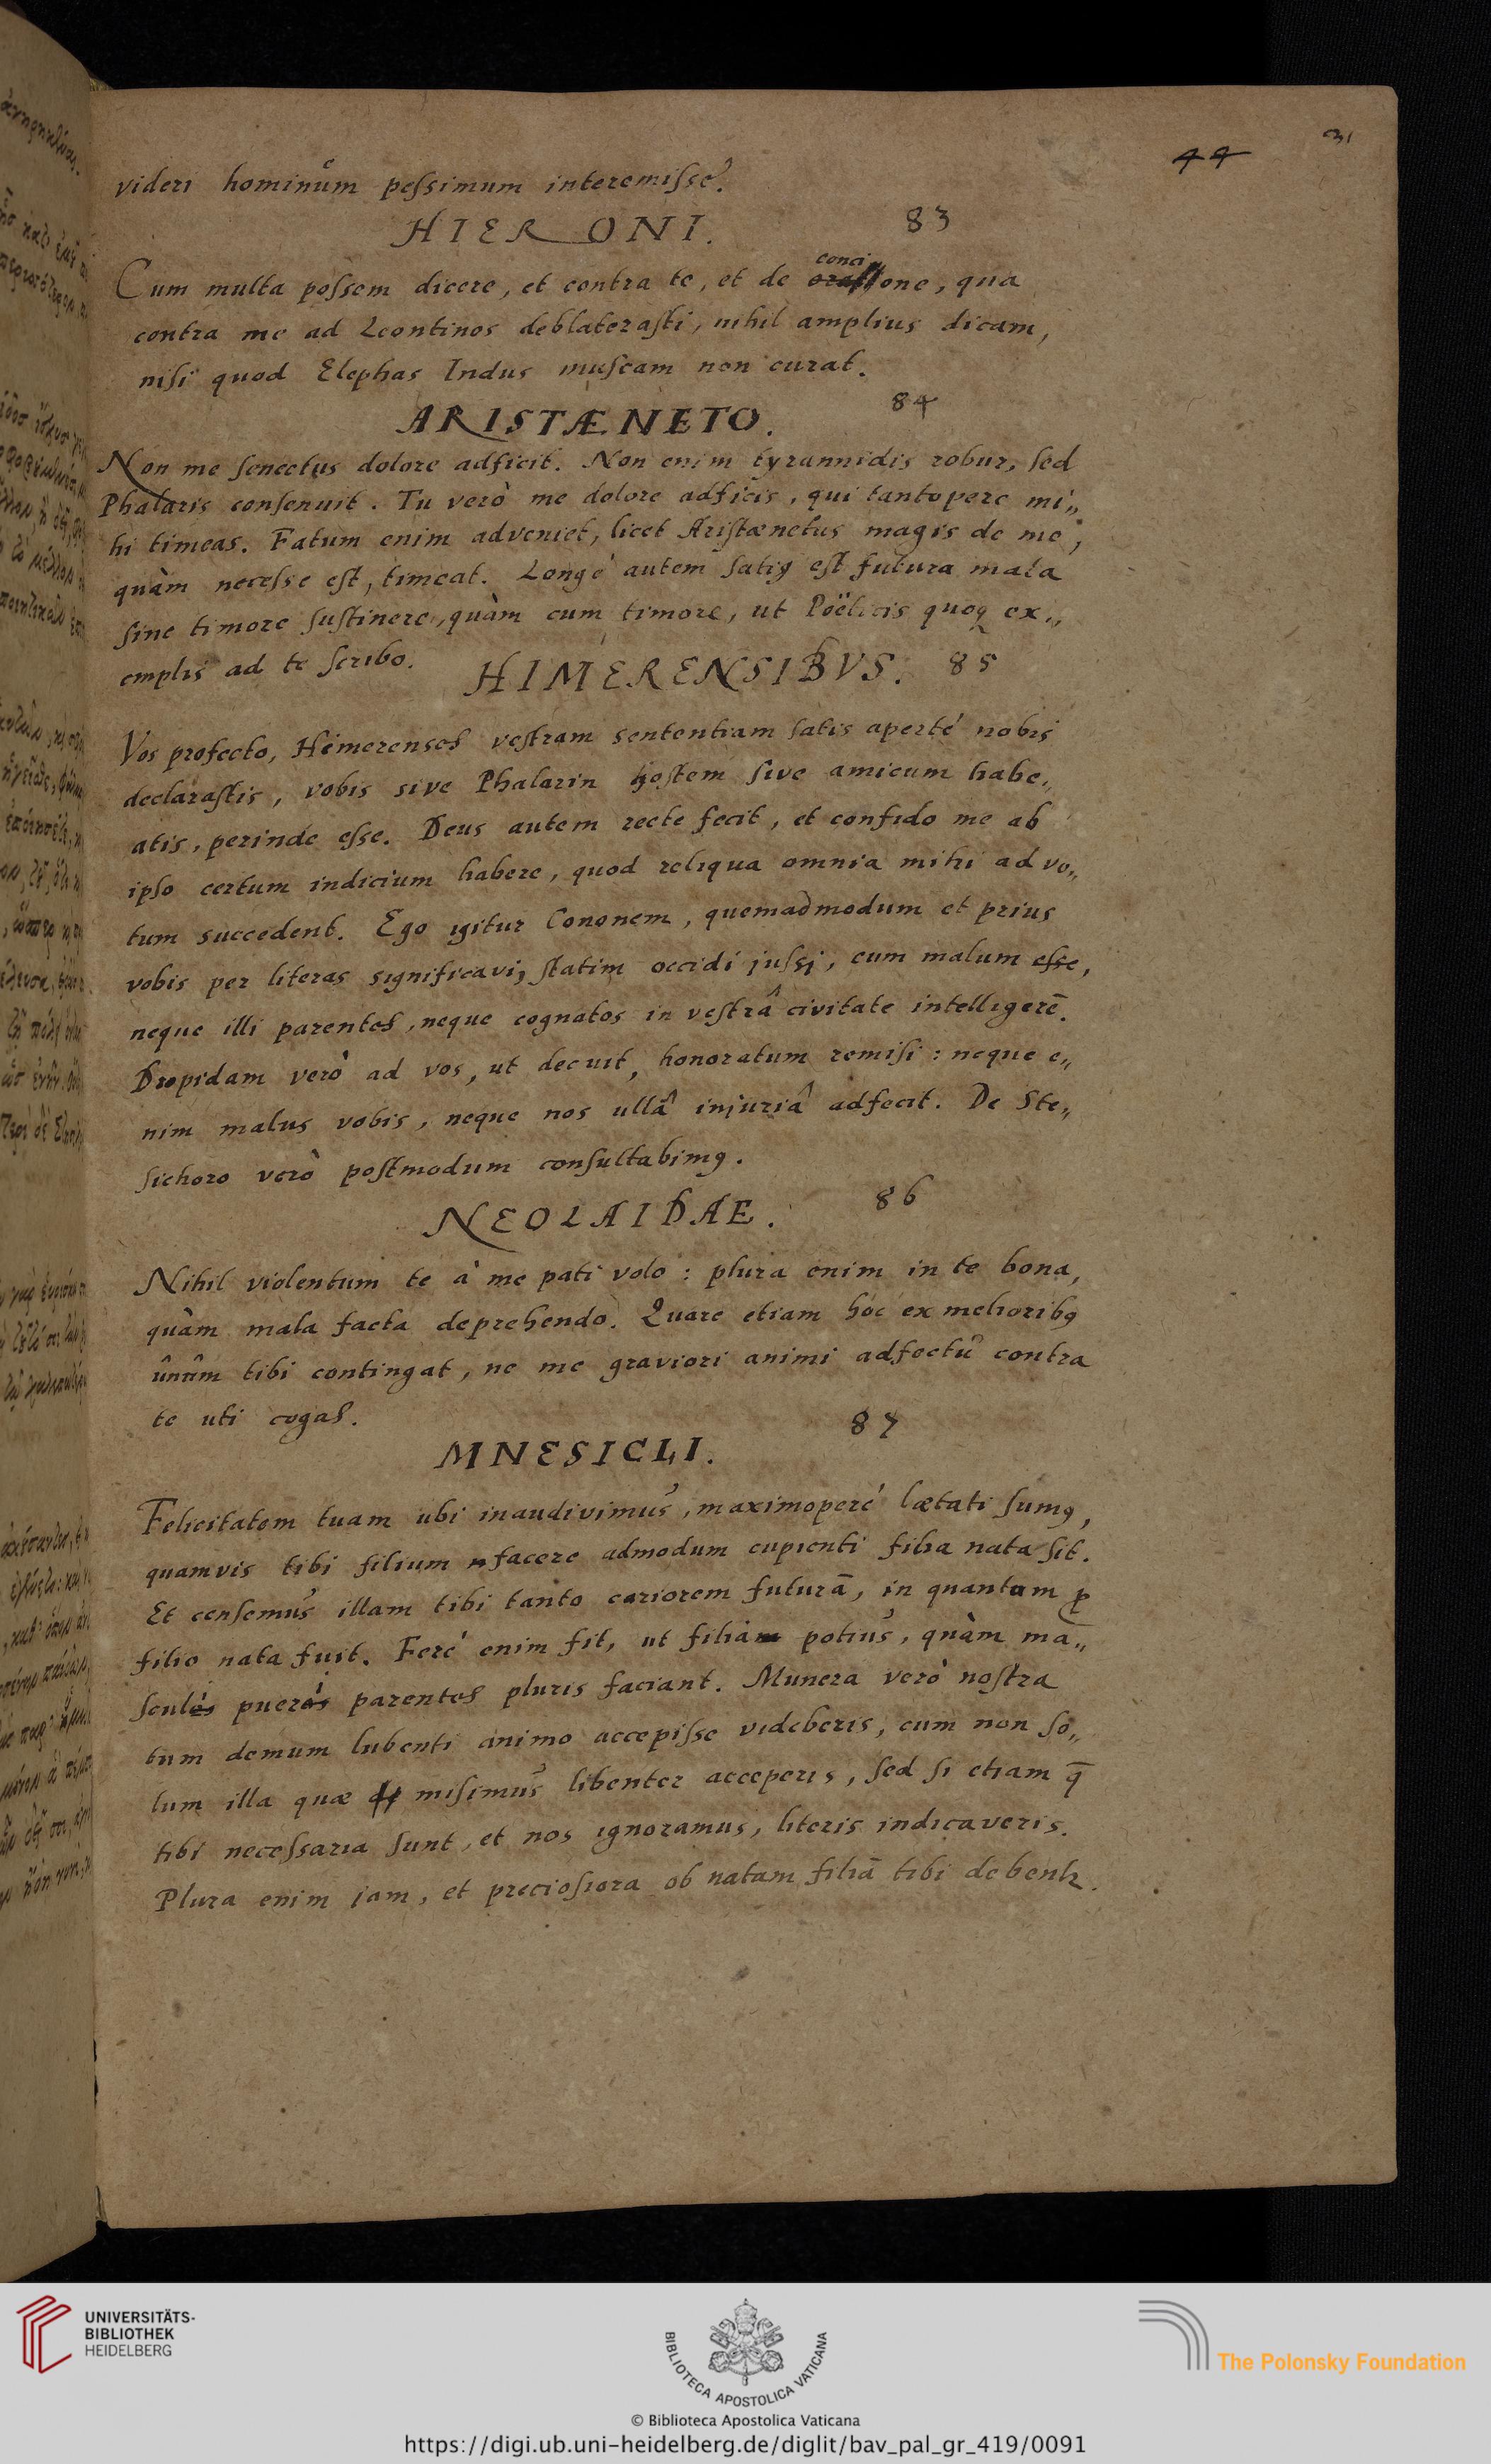 44
31
videri hominũm pessimum interemisse.
HIERONI. 83
conci
Cum multa possem dicere, et contra te, et de oratione, qua
contra me ad Leontinos deblaterasti, nihil amplius dicam,
nisi quod Elephas Indus muscam non curat.
ARISTÆNETO. 84
Non me senectus dolore adficit. Non enim tyrannidis robur, sed
Phalaris consenuit. Tu verò me dolore adficis, qui tantopere mi„
hi timeas. Fatum enim adveniet, licet Aristænetus magis de me,
quàm necesse est, timeat. Longè autem satiꝰ est futura mala
sine timore sustinere, quàm cum timore, ut Poëticis quoqꝫ ex„
emplis ad te scribo.
HIMERENSIBVS. 85
Vos profecto, Himerenses vestram sententiam satis apertè nobis
declarastis, vobis sive Phalarin hostem sive amicum habe„
atis, perinde esse. Deus autem recte fecit, et confido me ab
ipso certum indicium habere, quod reliqua omnia mihi ad vo„
tum succedent. Ego igitur Cononem, quemadmodum et prius
vobis per literas significavi, statim occidi jussi, cum malum esse,
neque illi parentes, neque cognatos in vestrâ civitate intelligerē.
Dropidam verò ad vos, ut decuit, honoratum remisi: neque e„
nim malus vobis, neque nos ullâ injuriâ adfecit. De Ste„
sichoro verò postmodum consultabimꝰ.
NEOLAIDAE. 86
Nihil violentum te à me pati volo: plura enim in te bona,
quàm mala facta deprehendo. Quare etiam hoc ex melioribꝰ
ûnûm tibi contingat, ne me graviori animi adfectũ contra
te uti cogas.
87
MNESICLI.
Felicitatem tuam ubi inaudivimus, maximoperè lætati sumꝰ,
quamvis tibi filium facere admodum cupienti filia nata sit.
Et censemus illam tibi tanto cariorem futurā, in quantum ꝓ
filio nata fuit. Ferè enim fit, ut filiam potius, quàm ma„
sculos pueros parentes pluris faciant. Munera verò nostra
tum demum lubenti animo accepisse videberis, cum non so„
lum illa quæ misimus libenter acceperis, sed si etiam q̄
tibi necessaria sunt, et nos ignoramus, literis indicaveris.
Plura enim jam, et preciosiora ob natam filiā tibi debentr.
UNIVERSITÄTS-
BIBLIOTHEK
HEIDELBERG
BIBLIOTECA APOSTOLICA VATICANA
The Polonsky Foundation
© Biblioteca Apostolica Vaticana
https://digi.ub.uni-heidelberg.de/diglit/bav_pal_gr_419/0091